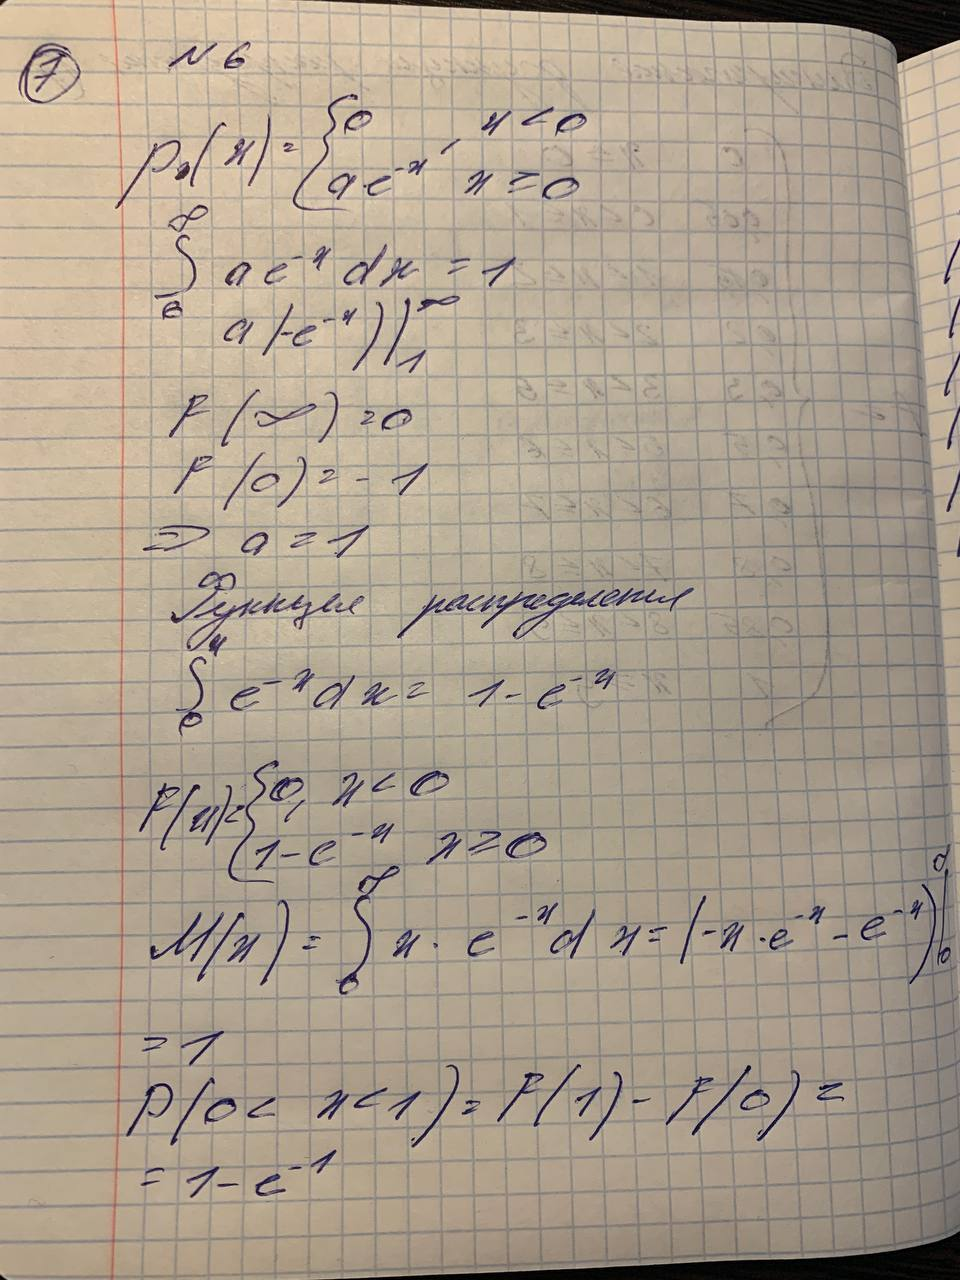 7 N 6
p(x) = { 0 , x < 0
a e^-x , x = 0
∫_0^∞ a e^-x dx = 1
a (-e^-x) |_1^∞
F (∞) = 0
F (0) = - 1
=> a = 1
Функция распределения
∫_0^x e^-x dx = 1 - e^-x
F(x) = { 0, x < 0
1 - e^-x x ≥ 0
M(x) = ∫_0^∞ x · e^-x d x = (-x · e^-x - e^-x) |_0^∞
= 1
P (0 < x < 1) = F(1) - F(0) =
= 1 - e^-1